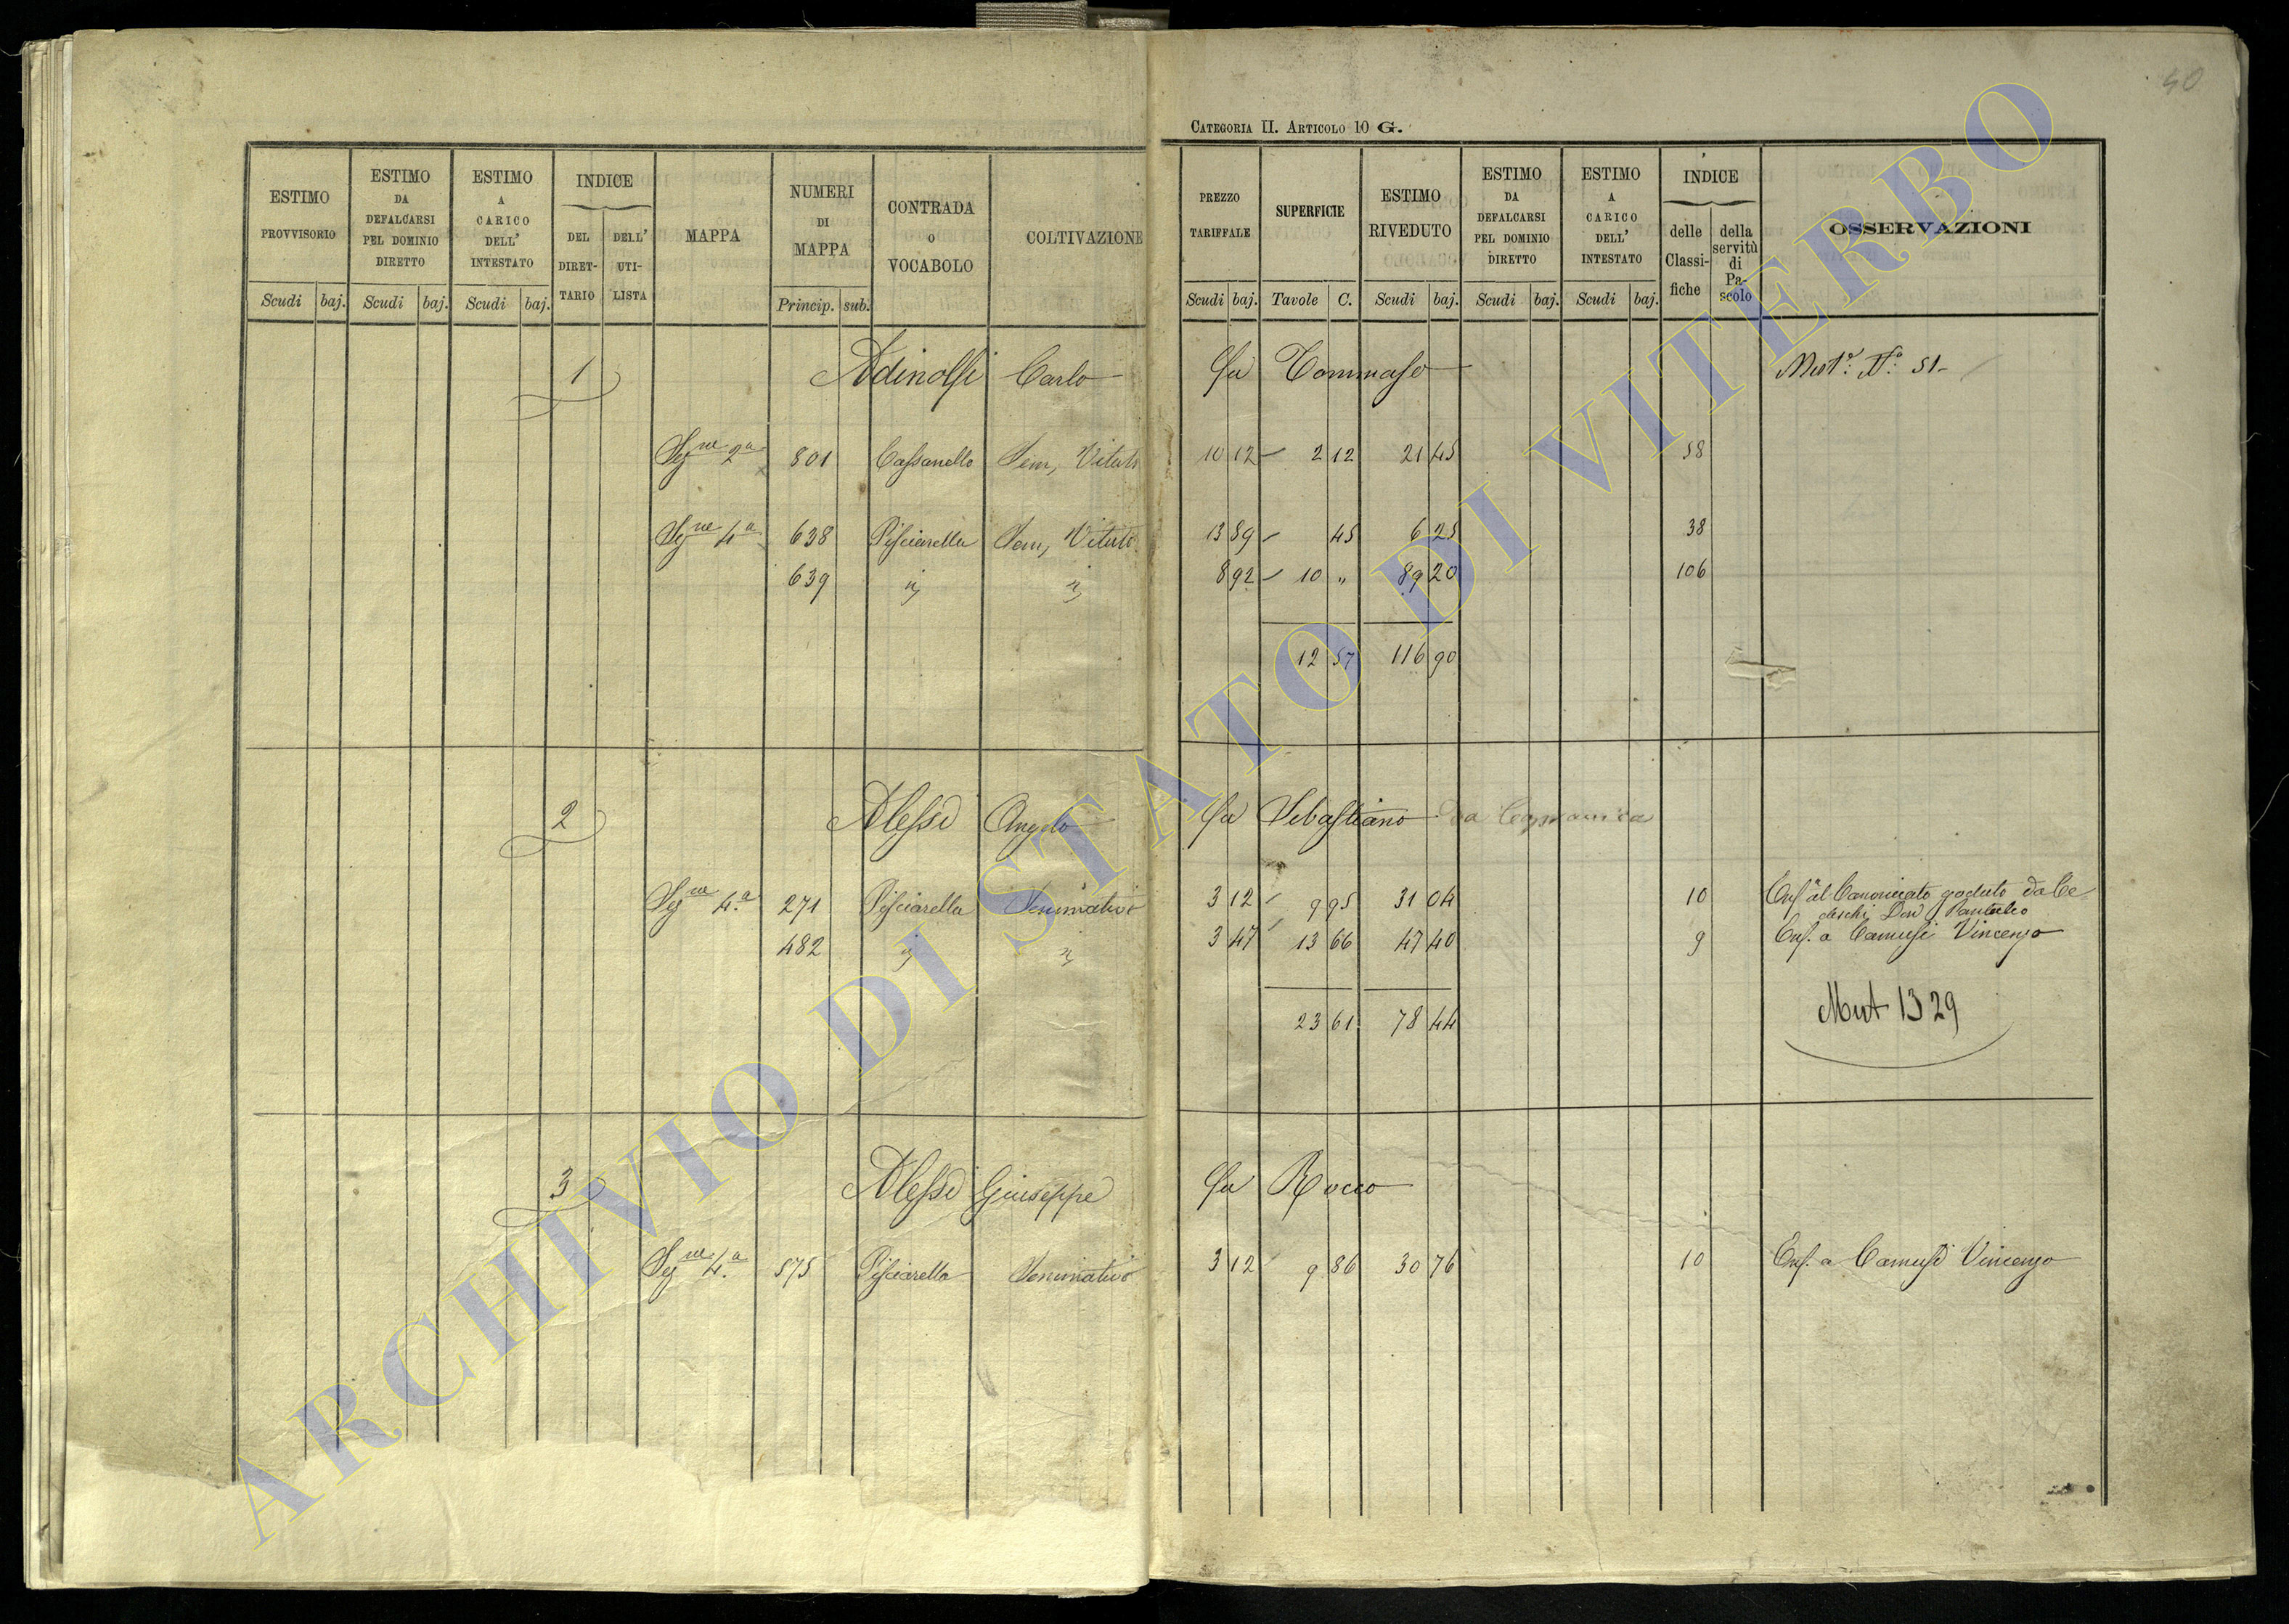 40
CATEGORIA II. ARTICOLO 10 G.
ESTIMO PROVVISORIO Scudi baj.
ESTIMO DA DEFALCARSI PEL DOMINIO DIRETTO Scudi baj.
ESTIMO A CARICO DELL' INTESTATO Scudi baj.
INDICE DEL DIRET-TARIO DELL' UTI-LISTA
MAPPA
NUMERI DI MAPPA Princip. sub.
CONTRADA O VOCABOLO
COLTIVAZIONE
PREZZO TARIFFALE Scudi baj.
SUPERFICIE Tavole C.
ESTIMO RIVEDUTO Scudi baj.
ESTIMO DA DEFALCARSI PEL DOMINIO DIRETTO Scudi baj.
ESTIMO A CARICO DELL' INTESTATO Scudi baj.
INDICE delle Classi-fiche della servitù di Pa-scolo
OSSERVAZIONI
1 Adinolfi Carlo fu Tommaso N° 51
Segne 2a 801 Cassanello Sem, Vitato 10 12 2 12 21 45 58
Segne 4a 638 Pisciarella Sem, Vitato 13 89 45 6 25 38
639 " " 8 92 10 " 89 20 106
12 57 116 90
2 Alessi Angelo fu Sebastiano da
Segne 4a 271 Pisciarella Seminativo 3 12 9 95 31 04 10 Enf. al Canonicato goduto da Ce-
deschi Don Pantaleo
482 " " 3 47 13 66 47 40 9 Enf. a Camusi Vincenzo
23 61 78 44 Mut 1329
3 Alessi Giuseppe fu Rocco
Segne 4a 575 Pisciarella Seminativo 3 12 9 86 30 76 10 Enf. a Camusi Vincenzo
ARCHIVIO DI STATO DI VITERBO